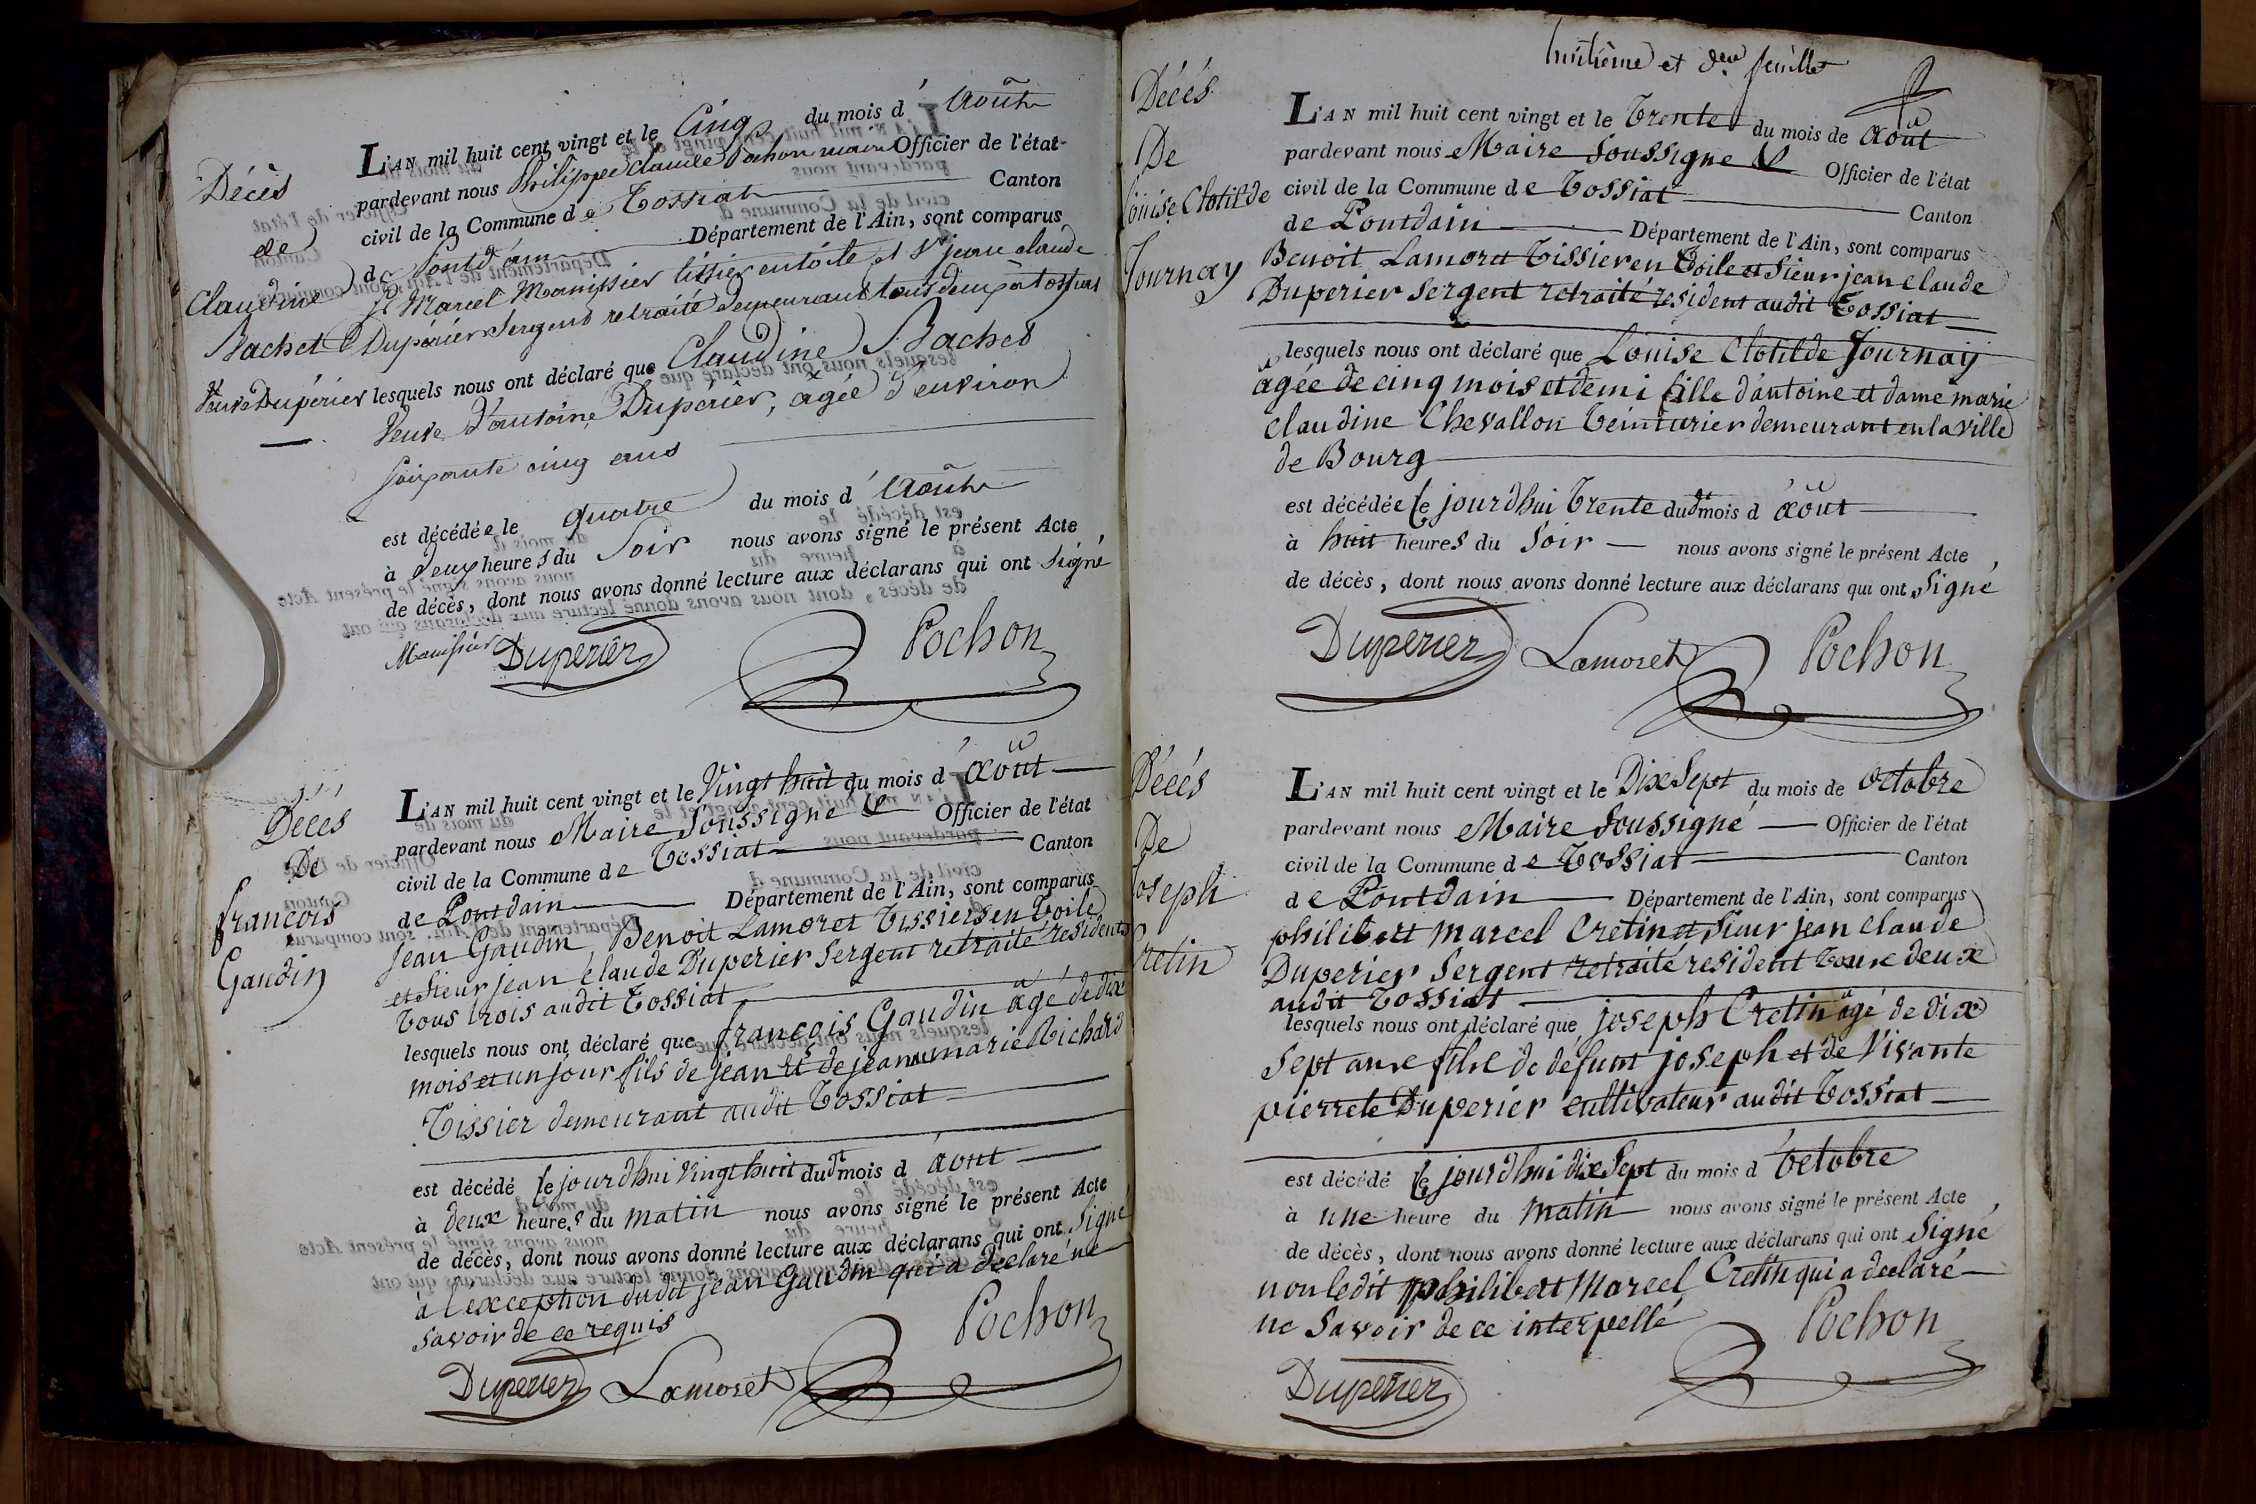 Décès
de
Claudine
Bachet
Veuve Dupérier
L'AN mil huit cent vingt et le Cinq du mois d'Août
pardevant nous Philippe Claude Pochon maire Officier de l'état-
civil de la Commune de Tossiat Canton
de Pontdain Département de l'Ain, sont comparus
Sr Marcel Monissier tissier en toile et Sr jean claude
Dupérier Sergent retraité demeurant tous deux à tossiat
lesquels nous ont déclaré que Claudine Bachet
Veuve d'antoine Duperier, agée d'environ
soixante cinq ans
est décédée le quatre du mois d'Août
à deux heures du Soir nous avons signé le présent Acte
de décès, dont nous avons donné lecture aux déclarans qui ont signé
Monissier Duperier Pochon
Décés
De
françois
Gaudin
L'AN mil huit cent vingt et le Vingt huit du mois d'août
pardevant nous Maire Soussigné Officier de l'état
civil de la Commune de Tossiat Canton
de Pontdain Département de l'Ain, sont comparus
jean Gaudin, Benoit Lamoret Tissiers en Toile
et Sieur jean claude Duperier Sergent retraité résidents
tous trois audit Tossiat
lesquels nous ont déclaré que françois Gaudin agé de dix
mois et un jour fils de jean et de jeanne marie Richard
Tissier demeurant audit Tossiat
est décédé le jourdhui vingt huit dudt mois d'aout
à deux heures du matin nous avons signé le présent Acte
de décès, dont nous avons donné lecture aux déclarans qui ont Signé
à l'exception dudit jean Gaudin qui a declaré ne
savoir de ce requis
Duperier Lamoret Pochon
huitième et dere feuille
Décés
De
Louise Clotilde
Journay
L'AN mil huit cent vingt et le Trente du mois de août
pardevant nous Maire Soussigné Officier de l'état
civil de la Commune de Tossiat Canton
de Pontdain Département de l'Ain, sont comparus
Benoit Lamoret Tissier en Toile et Sieur jean claude
Duperier Sergent retraité résident audit Tossiat
lesquels nous ont déclaré que Louise Clotilde Journay
agée de cinq mois et demi fille d'antoine et dame marie
claudine Chevallon teinturier demeurant en la ville
de Bourg
est décédée le jourdhui Trente dudt mois d'août
à huit heures du Soir nous avons signé le présent Acte
de décès, dont nous avons donné lecture aux déclarans qui ont Signé
Duperier Lamoret Pochon
Décés
De
Joseph
Cretin
L'AN mil huit cent vingt et le Dix Sept du mois de Octobre
pardevant nous Maire Soussigné Officier de l'état
civil de la Commune de Tossiat Canton
de Pontdain Département de l'Ain, sont comparus
philibert marcel Cretin et Sieur jean claude
Duperier Sergent retraité resident tous deux
audit Tossiat
lesquels nous ont déclaré que joseph Cretin agé de dix
Sept ans fils de défunt joseph et de Vivante
pierrete Duperier cultivateur audit Tossiat
est décédé le jourdhui dix Sept du mois d'Octobre
à une heure du matin nous avons signé le présent Acte
de décès, dont nous avons donné lecture aux déclarans qui ont Signé
non ledit philibert Marcel Cretin qui a declaré
ne Savoir de ce interpellé
Duperier Pochon